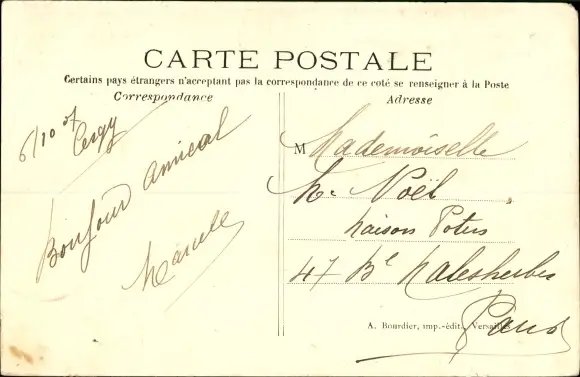 CARTE POSTALE
Certains pays étrangers n'acceptant pas la correspondance de ce coté se renseigner à la Poste
Correspondance
6/10 07
Cergy
Bonjour amical
Marcelle
Adresse
M Mademoiselle
M. Noël
Maison Potin
47 Bd Malesherbes
Paris
A. Bourdier, imp.-édit., Versailles